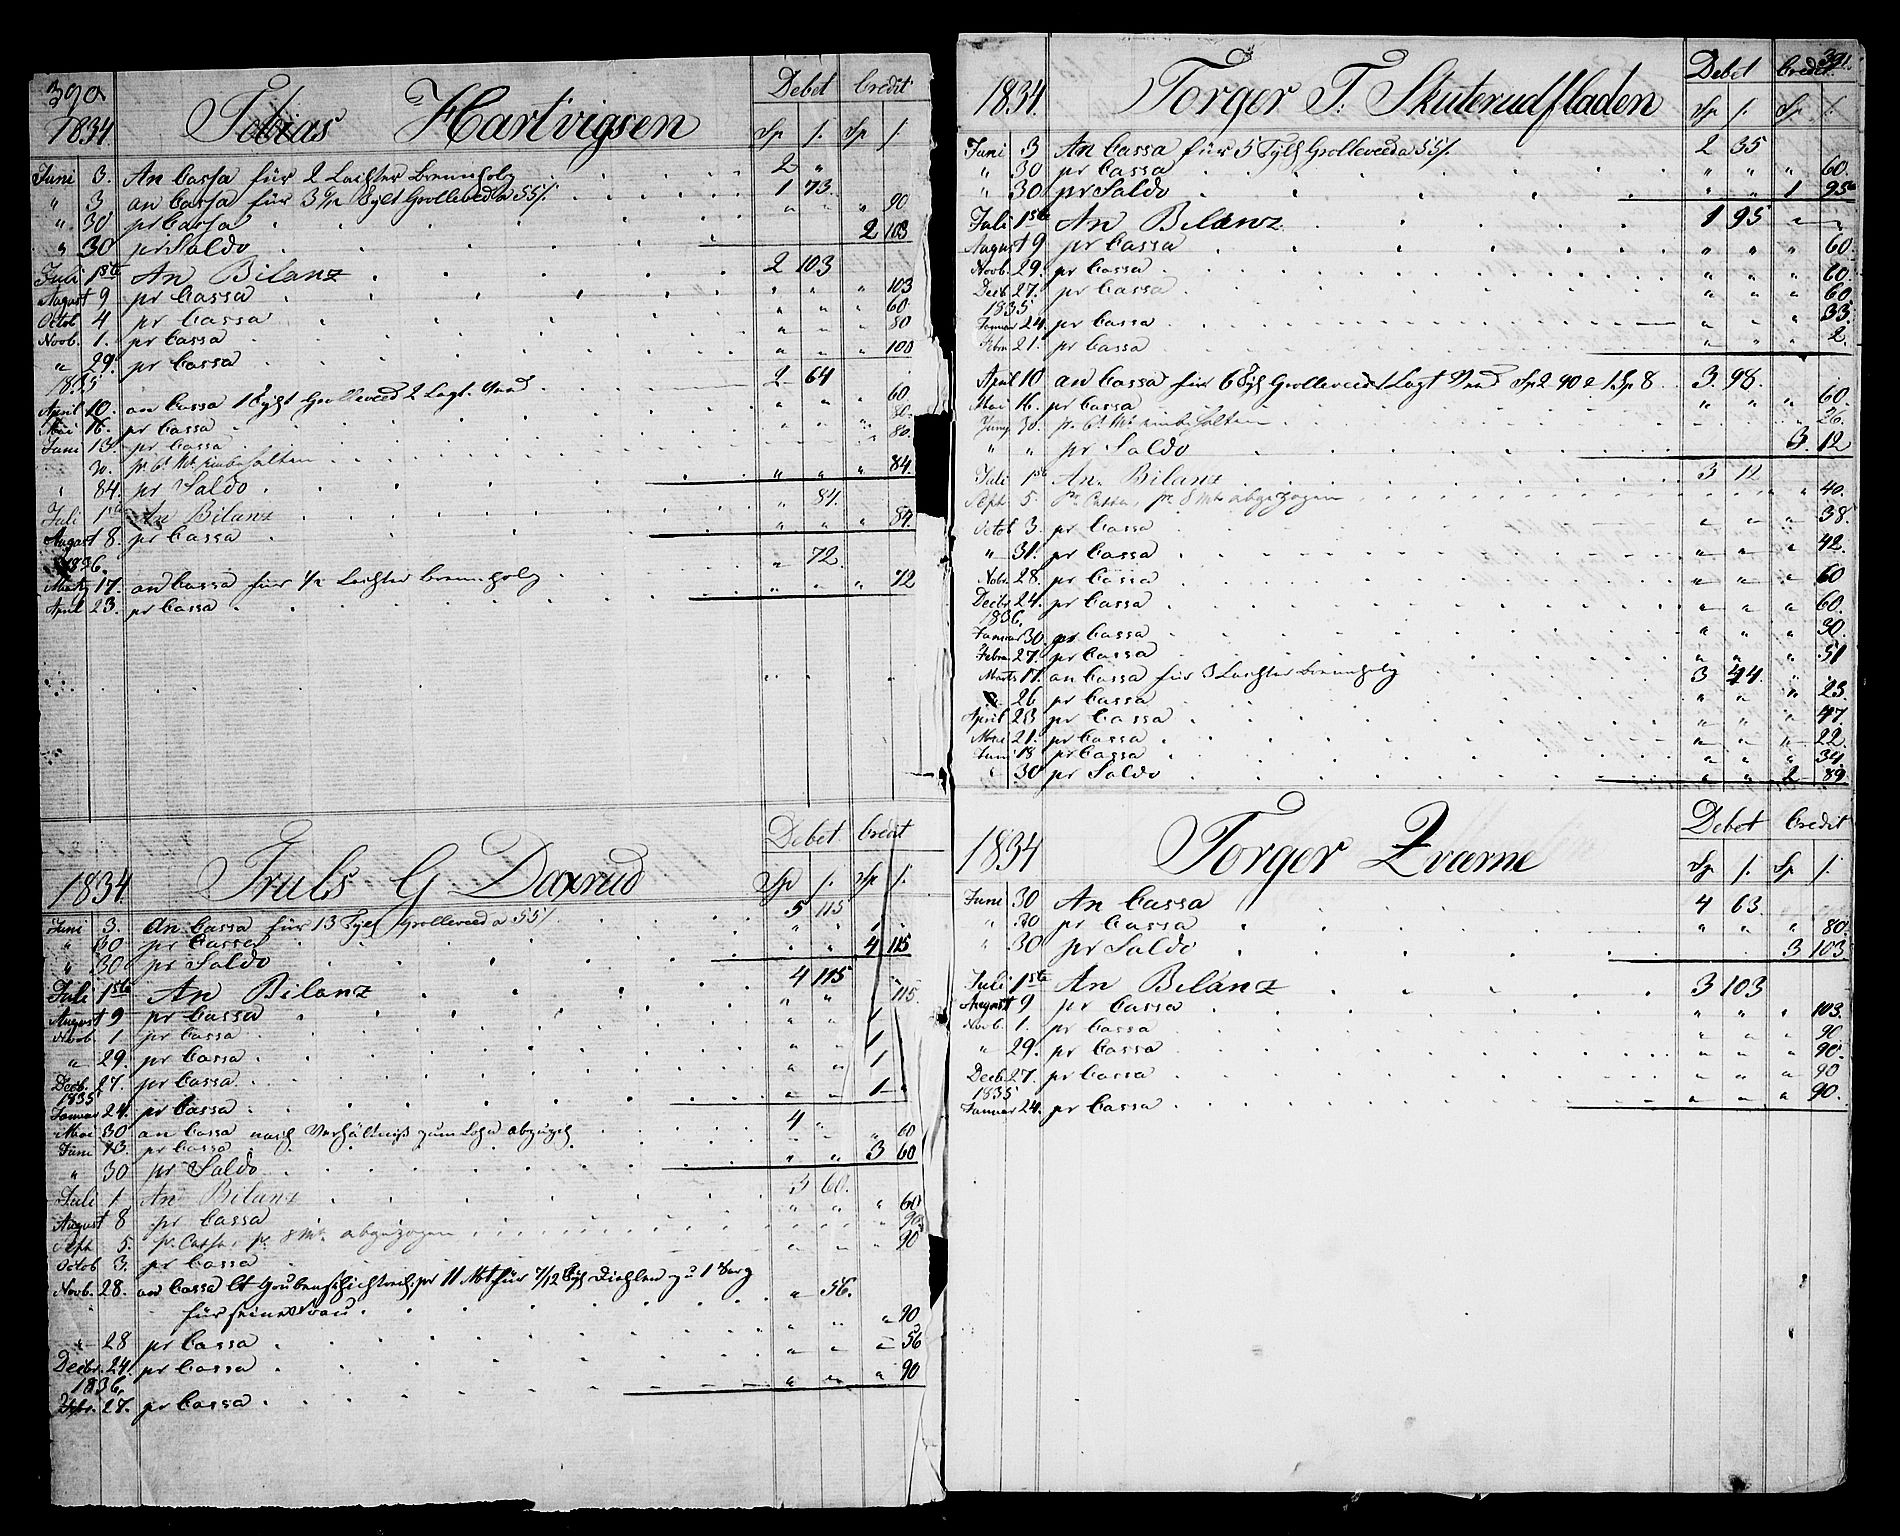 390
1834 Tobias Hartvigsen Debet Credit
Sp /. Sp /.
Juni 3. An Cassa für 2 Lachter Brennholz 2 "
" 3 an Cassa für 3 Tylt Grolleved a 55/. 1 73.
" 30 pr Cassa " " " 90
" 30 pr Saldo 2 103
Juli 1ste An Bilanz 2 103
August 9 pr Cassa " " " 103
Octob 4 pr Cassa " " " 60
Novb. 1. pr Cassa " " " 80
" 29. pr Cassa " " " 100
1835
April 10. an Cassa 1 Tylt Grolleveed 2 Lagt. Vand 2 64
Mai 16. pr Cassa " " " 60
Juni 13. pr Cassa " " " 80.
30. pr 6t Mt einbehalten 80.
" 84. pr Saldo " " " 84.
Juli 1ste An Bilanz " 84.
August 8. pr Cassa " " " 84.
1836.
Martz 17. an Cassa für 1/2 Lachter Brennholz " 72.
April 23. pr Cassa " " " 72
1834 Truls G Daxrud Debet Credit
Sp /. Sp /.
Juni 3. An Cassa für 13 Tylt Grolleveed a 55/. 5 115
" 30 pr Cassa " " 1 "
" 30 pr Saldo " " 4 115
Juli 1ste An Bilanz 4 115
August 9 pr Cassa " " " 115.
Novb. 1 pr Cassa " " 1
" 29. pr Cassa " " 1
Decb. 27. pr Cassa " " 1
1835
Januar 24. pr Cassa " " 1 "
Mai 30 an Cassa nach Verhältniß zum Lohn abgezgt 4 "
Juni 13. pr Cassa " 60
" 30 pr Saldo " " 3 60
Juli 1 An Bilanz 3 60.
August 8 pr Cassa " " " 60
Sept 5. pr Cassa, pr 8 Mt abgezogen 90
Octob 3. pr Cassa " " " 90
Novb. 28. an Cassa lt Grubenschichtrech. pr 11 Mt für 7/12 Tylt Diehlen zu 1 Sarg
für seine Frau " 56.
" 28 pr Cassa " " " 90
Decbr. 24. pr Cassa " " " 56
1836.
Febr. 27. pr Cassa " " " 90
391.
1834. Torger T. Skuterudfladen Debet Credit
Sp /. Sp /.
Juni 3 An Cassa für 5 Tylt Grolleveed a 55/. 2 35
" 30 pr Cassa " " " 60.
" 30 pr Saldo " " 1 95
Juli 1ste An Bilanz 1 95 " "
August 9 pr Cassa " " " 60.
Novb. 29. pr Cassa " " " 60.
Decb. 27. pr Cassa " " " 60
1835
Januar 24. pr Cassa " " " 33.
Febr. 21. pr Cassa " " " 2.
April 10 an Cassa für 6 Tylt Grolleveed 1 Lagt Vand Sp 2 90 a 1 Sp 8 3. 98.
Mai 16. pr Cassa " " " 60.
Juny 30. pr 6t Mt einbehalten 26.
" " pr Saldo 3. 12
Juli 1ste An. Bilanz 3 12
Sept 5. pr Cassa, pr 8 Mt abgezogen " 40.
Octob 3. pr Cassa " " " 38.
" 31. pr Cassa " " " 42.
Nobr. 28. pr Cassa " " " 60
Decbr. 24. pr Cassa " " " 60.
1836.
Januar 30. pr Cassa " " " 30.
Febr. 27. pr Cassa " " " 51
Martz 17. an Cassa für 3 Lachter Brennholz 3 44. "
" 26 pr Cassa " " " 23.
April 23 pr Cassa " " " 47.
Mai 21. pr Cassa " " " 22.
Juni 18 pr Cassa " " " 34.
" 30 pr Saldo " " 2 89.
1834 Torger Qværne Debet Credit
Sp /. Sp /.
Juni 30 An Cassa 4 63.
" 30 pr Cassa " " " 80.
" 30 pr Saldo 3 103
Juli 1ste An Bilanz 3 103
August 9 pr Cassa " " " 103.
Novb. 1. pr Cassa " " " 90
" 29. pr Cassa " " " 90.
Decb. 27. pr Cassa " " " 90
1835
Januar 24. pr Cassa " " " 90.